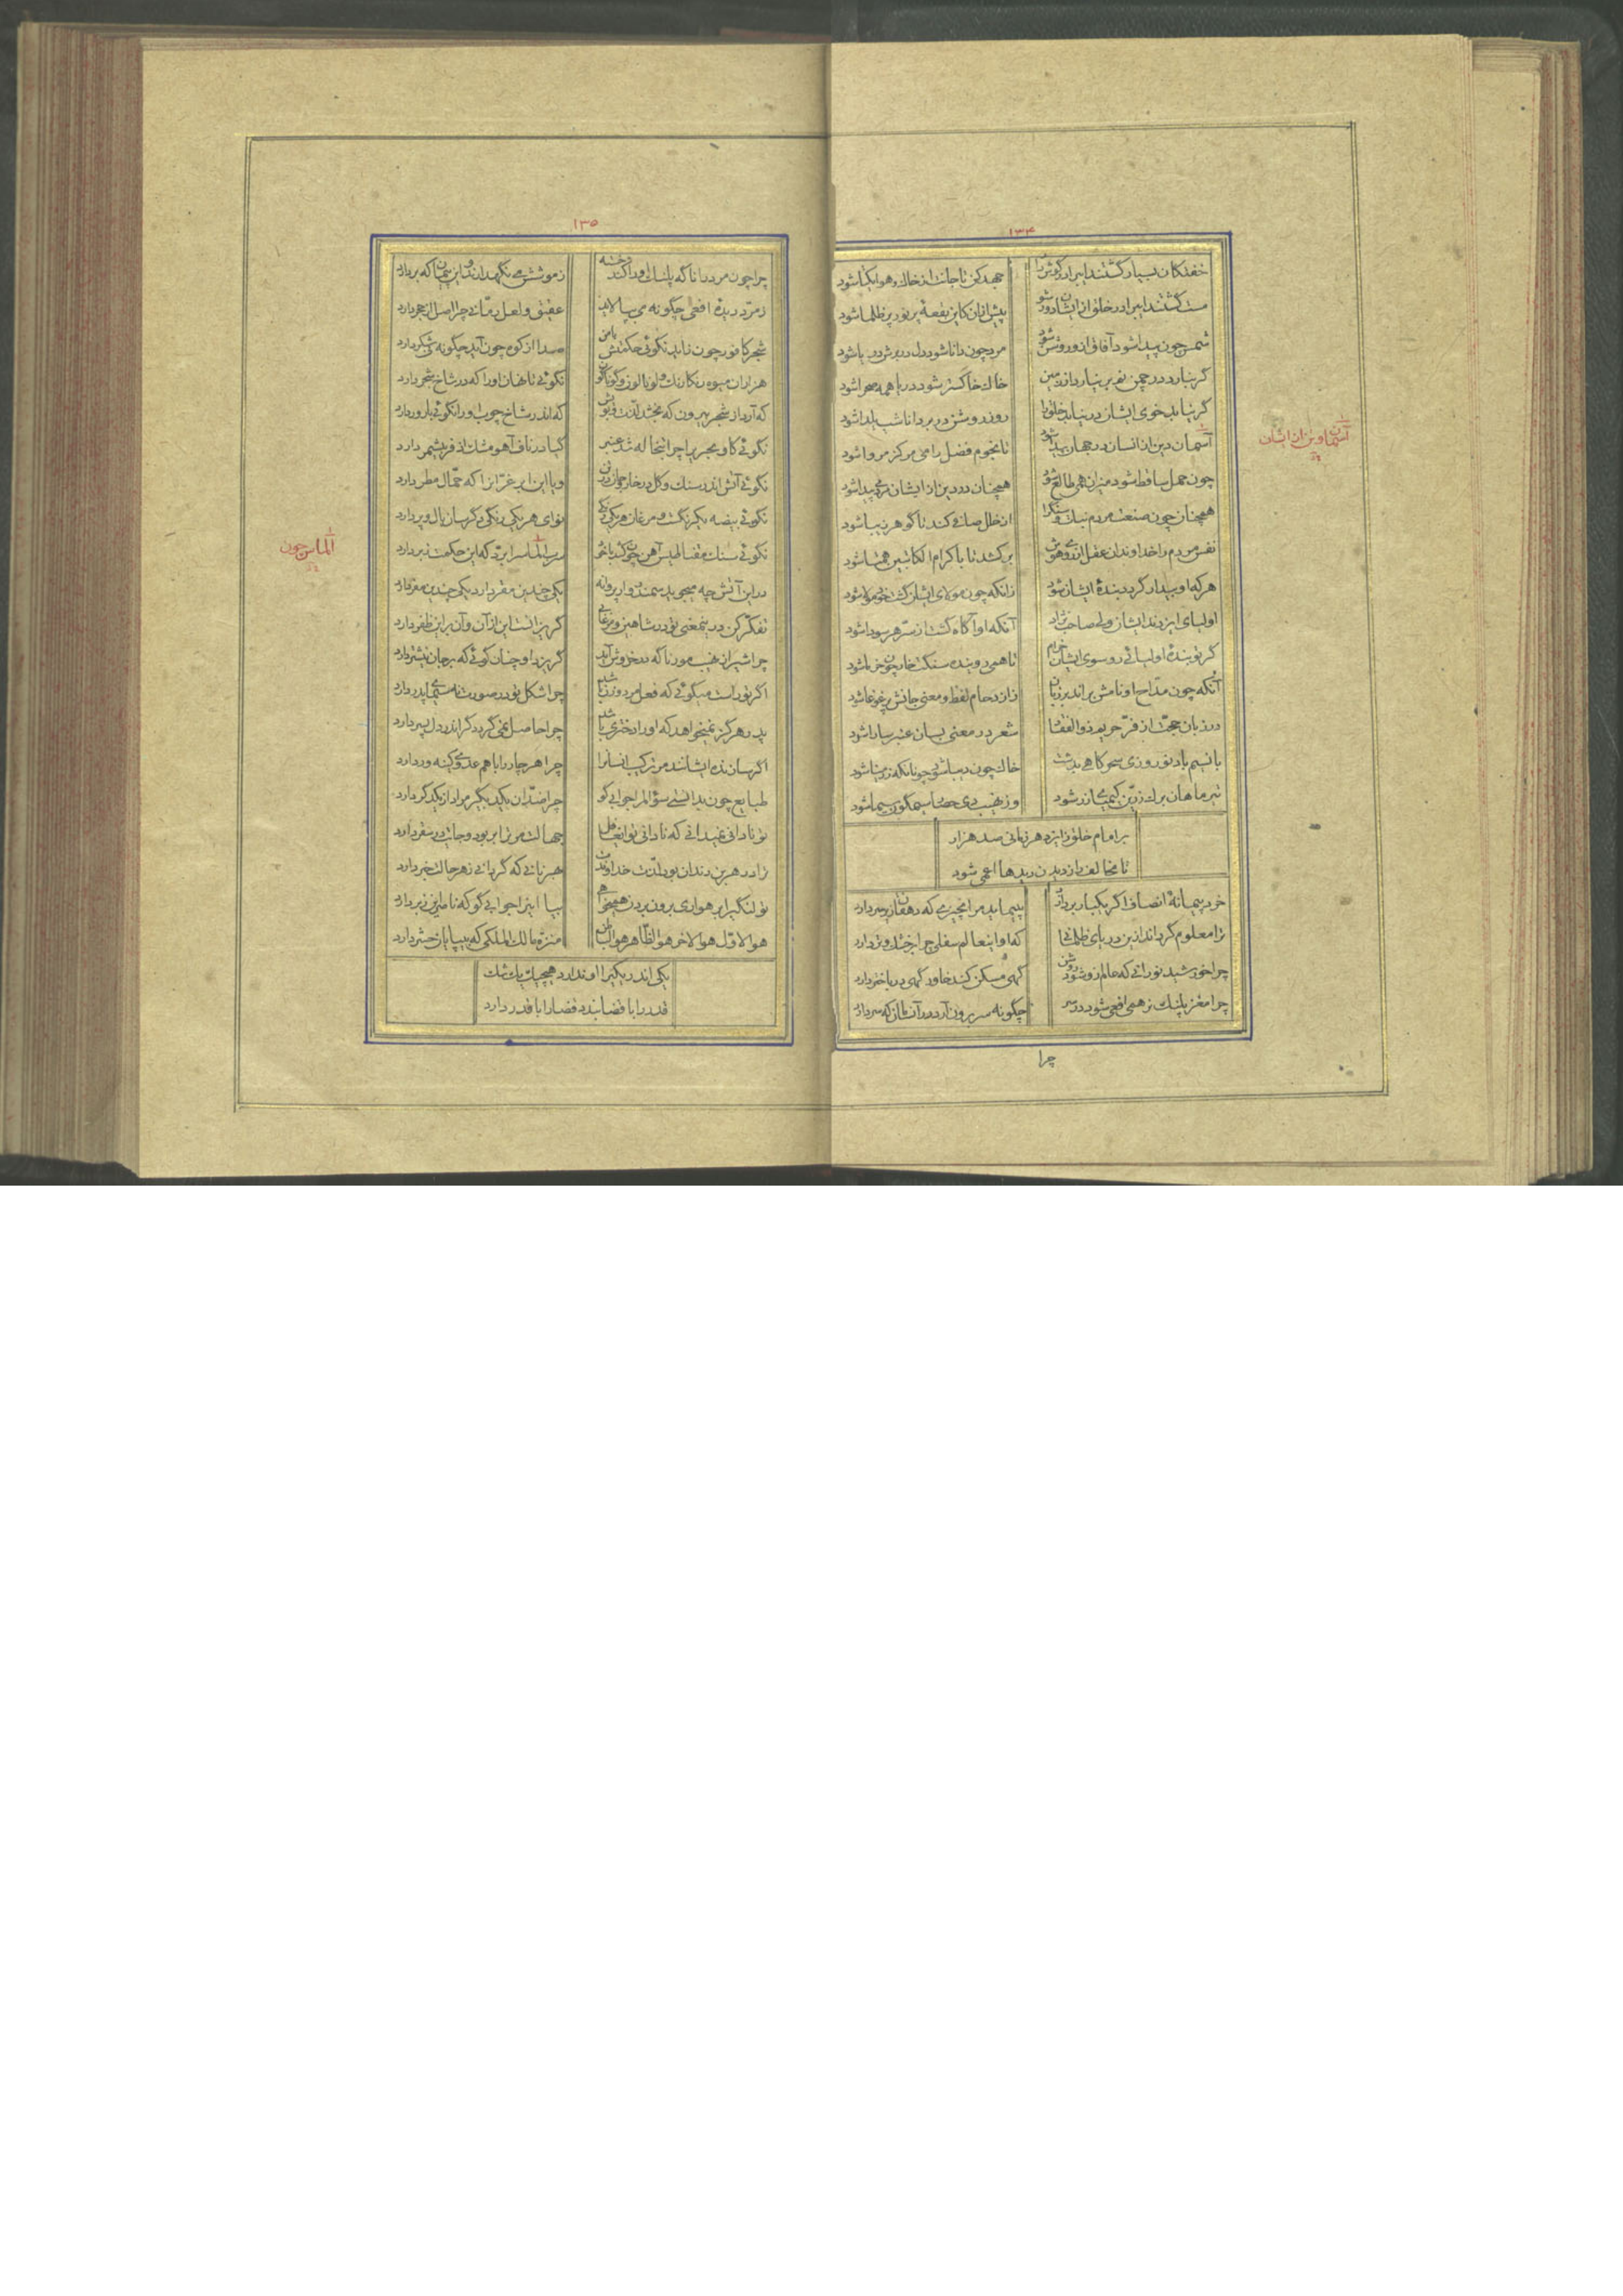 ۱۳۴
خفتکان بسیار گشتند ای برادر گوش دار جهد کن تا جانت از خاک و هوا یکتا شود
مست گشتند ای برادر خلق از ایشان دور شو پیش ازان کاین بقعهٔ پر نور پر ظلما شود
شمس چون پیدا شود آفاق ازو روشن شود مرد چون دانا شود دل در برش دریا شود
گر نبارد در چمن نم بر نیارد از زمین خاک خاکستر شود دریا همه صحرا شود
گر نیابد خوی ایشان در نیابد خلق را روز روشن در بر دانا شب یلدا شود
آسمان دین از انسان در جهان پیدا شود تا نجوم فضل را می مرکز مروا شود
چون حمل ساقط شود میزان همی طالع شود همچنان در دین از ایشان مرد می پیدا شود
همچنان چون صنعت مردم نیک و سنگ را از ظل صانع کند تا گوهر زیبا شود
نفس مردم را خداوندان عقل اندر و هوش برکشد تا با کرام الکاتبین همتا شود
هرکه او بیدار گردد بندهٔ ایشان شود زانکه چون مولای ایشان گشت خود مولا شود
اولیای ایزدند ایشان ولی صاحب نژاد آنکه او آگاه گشت از سر هر سودا شود
گر تو بندهٔ اولیائی رو سوی ایشان خرام تا همی در بنده سنگت خار چون خرما شود
آنکه چون مداح او نامش براند بر زبان از ازدحام لفظ و معنی جانش پر غوغا شود
در زبان حجت از فر حریم ذوالفقار شعر در معنی بسان عنبر سارا شود
با نسیم باد نوروزی سحرگاهی بدشت خاک چون دیبا شود چونانکه زو زیبا شود
تیر ماهان برگ زرین کیمیای زر شود
بر امام خلق زایزد هر زمانی صد هزار
تا مخالف را ز دیدن دیدها اعمی شود
خرد پیمانهٔ انصاف اگر یکبار بردارد بپیماید مر انچیزی که دهقان زیر سر دارد
ترا معلوم گرداند ازین دریای ظلمانی که او اینعالم سفلی چرا بر خشک و تر دارد
چرا خورشید نورانی که عالم زو شود روشن گهی مسکن کند خاور گهی در باختر دارد
چرا مغز پلنگ نر همی افعی شود در سر چگونه سر برون آرد در آن مان که سر دارد
چرا
آسمان دین از ایشان
۱۳۵
چرا چون مرد را ناگه پلنگ او را کند خسته ز موشش می نگهدارند و این پنهان که بر دارد
زمرد دیدهٔ افعی چگونه می بپالاید عقیق و لعل رمانی چرا اصل از حجر دارد
شجر کافور چون زاید نگوئی حکمتش با من صدا از کوه چون آید چگونه نی شکر دارد
هزاران میوه رنگارنگ و لونالون و گوناگون نگوئی تا نهان او را که در شاخ شجر دارد
که آرد از شجر بیرون که بخشد لذت و بویش که اندر شاخ چوب او را نگوئی بارور دارد
نگوئی گاو بحری را چرا انجا که شد عنبر گیا در ناف آهو مشک اذفر بیشمر دارد
نگوئی آتش اندر سنگ و گل در خار چون آن زن و یا این ابر غرانرا که حمال مطر دارد
نگوئی بیضه یکرنگست و مرغان هر یکی رنگی نوای هر یکی رنگی دگر سان بال و پر دارد
نگوئی سنگ مقناطیس آهن چون کند با خود سرب الماس را برد که این حکمت ز بر دارد
درین آتش چه میجوید سمندر وار پروانه یکی چندین مقر دارد یکی چندین مفر دارد
تفکر کن درینمعنی تو در شاهین و مرغابی گریزانست این ازان و آن بر این ظفر دارد
چرا شیر از نهیب مور ناگه در خروش آید گریزد او چنان گوئی که بر جان نیشتر دارد
اگر تو راست میگوئی که فعل مرد و زن باشد چرا شکل تو در صورت نه سیمای پدر دارد
پدر هرگز نمیخواهد که او را دختری باشد چرا حاصل نمی گردد گر اندر دل پسر دارد
اگر سازنده ایشانند مر ترکیب انسانرا چرا هر چار را با هم عدوی کینه ور دارد
طبایع چون بدانستی سؤالم را جوابی گو چرا ضدان یکدیگر مراد از یکدگر دارد
تو نادانی نمیدانی که نادانی تو ای غافل جهالت مر ترا بر بود و جانت در سقر دارد
ترا در هر بن دندان بود لذت خداوندت بهر نانی که گردانی ز هر حالت خبر دارد
تو لنگی را برهواری برون بردن همیخواهی بیا اینرا جوابی گو که ناصر این ز بر دارد
هو الاول هو الاخر هو الظاهر هو الباطن منزه مالک الملکی که بیپایان حشر دارد
یکی اندر یکی را او ندارد هیچ بیک شک
قدر را با قضا بندد قضا را با قدر دارد
الماس چون